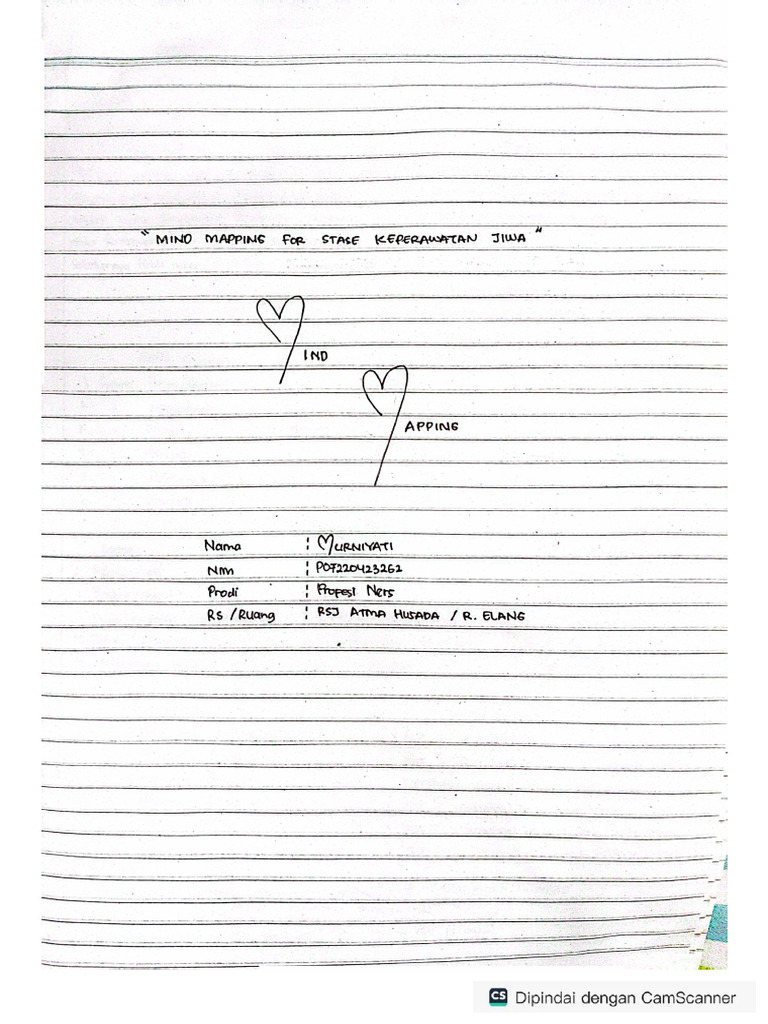 " MIND MAPPING FOR STASE KEPERAWATAN JIWA "
MIND
MAPPING
Nama : MURNIYATI
Nim : P07220423262
Prodi : Profesi Ners
RS / Ruang : RSJ ATMA HUSADA / R. ELANG
CS Dipindai dengan CamScanner